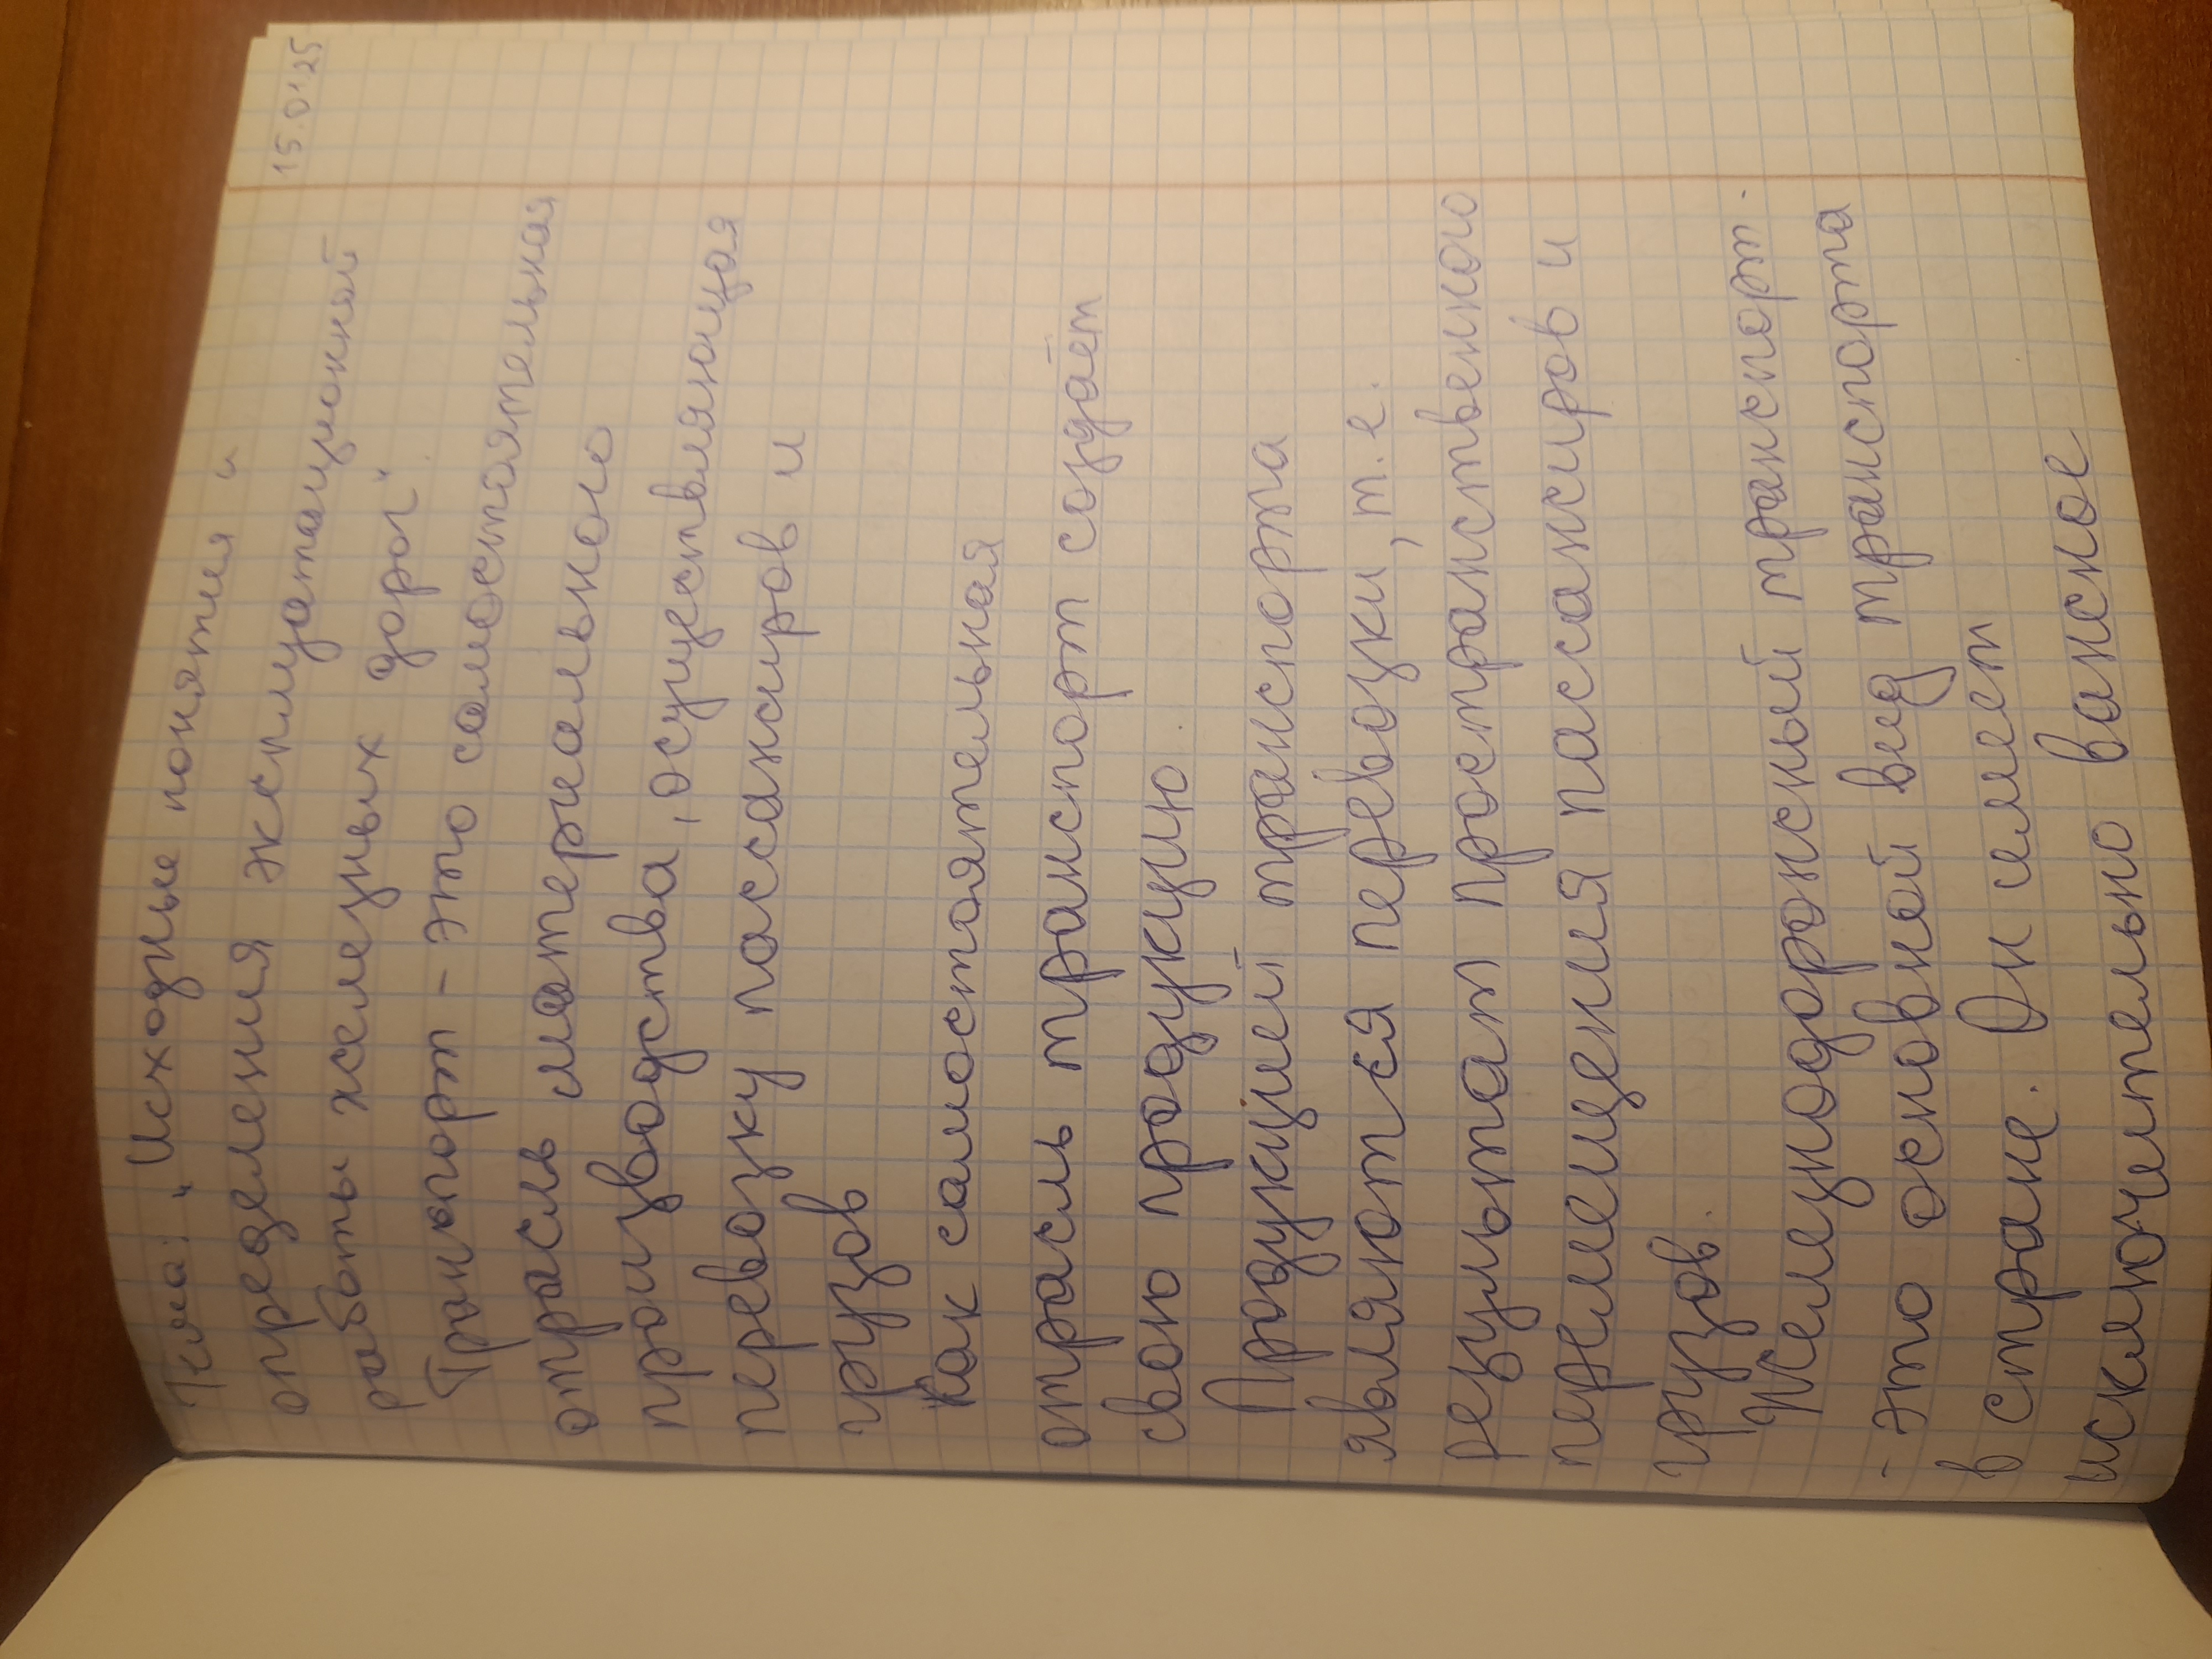 15.01.25
Тема: „Исходные понятия и
определения эксплуатационной
работы железных дорог".
Транспорт - это самостоятельная
отрасль материального
производства, осуществляющая
перевозку пассажиров и
грузов
Как самостоятельная
отрасль транспорт создаёт
свою продукцию.
Продукцией транспорта
являются перевозки, т.е.
результат пространственного
перемещения пассажиров и
грузов.
Железнодорожный транспорт.
- это основной вид транспорта
в стране. Он имеет
исключительно важное